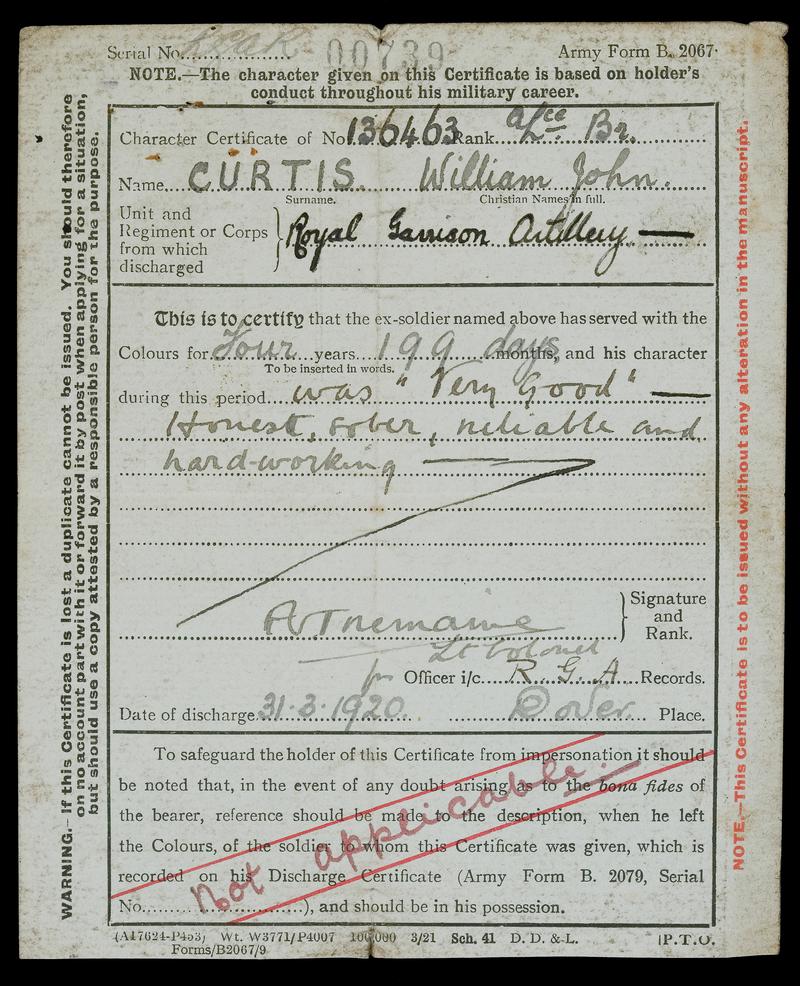 Serial No. 00739 Army Form B. 2067.
NOTE.—The character given on this Certificate is based on holder's
conduct throughout his military career.
Character Certificate of No. 136463 Rank a/Lce Br.
Name CURTIS William John.
Surname. Christian Names in full.
Unit and
Regiment or Corps
from which
discharged
Royal Garrison Artillery —
This is to certify that the ex-soldier named above has served with the
Colours for Four years 199 days months, and his character
To be inserted in words.
during this period was "Very Good" —
Honest, sober, reliable and
hard-working —
Signature
and
Rank.
Lt Colonel
for Officer i/c R.G.A. Records.
Date of discharge 31.3.1920. Dover Place.
To safeguard the holder of this Certificate from impersonation it should
be noted that, in the event of any doubt arising as to the bona fides of
the bearer, reference should be made to the description, when he left
the Colours, of the soldier to whom this Certificate was given, which is
recorded on his Discharge Certificate (Army Form B. 2079, Serial
No. ), and should be in his possession.
Not applicable.
(A17624-P453) Wt. W3771/P4007 100,000 3/21 Sch. 41 D. D. & L. [P.T.O.
Forms/B2067/9
WARNING.—If this Certificate is lost a duplicate cannot be issued. You should therefore
on no account part with it or forward it by post when applying for a situation,
but should use a copy attested by a responsible person for the purpose.
NOTE.—This Certificate is to be issued without any alteration in the manuscript.